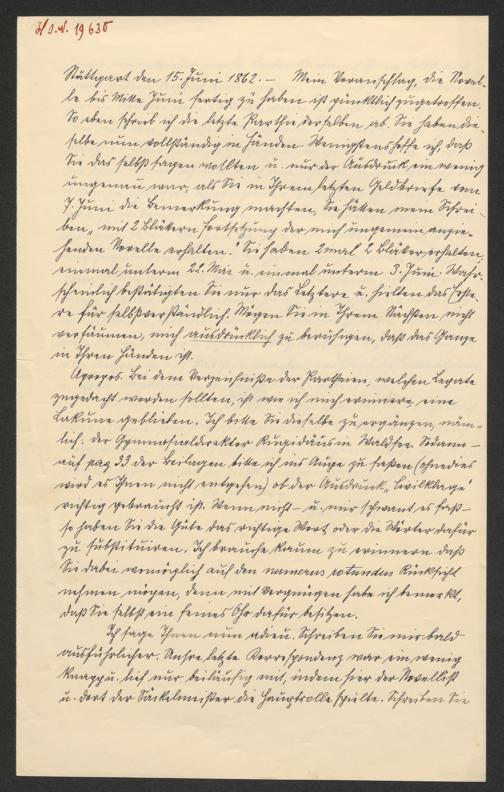 H.I.N. 19635
Stuttgart den 15. Juni 1862. — Mein Voranschlag, die Novel-
le bis Mitte Juni fertig zu haben ist pünktlich zugetroffen.
So eben schrieb ich die letzte Parthie derselben ab. Sie haben die-
selbe nun vollständig in Händen. Wenigstens hoffe ich, daß
Sie das selbst sagen wollten u. nur der Ausdruck ein wenig
ungenau war, als Sie in Ihrem letzten Geldbriefe vom
7. Juni die Bemerkung machten, Sie hätten mein Schrei-
ben „mit 2 Blättern Fortsetzung der mich ungemein anzie-
henden Novelle erhalten." Sie haben 2 mal 2 Blätter erhalten,
einmal unterm 22. Mai u. einmal unterm 3. Juni. Wahr-
scheinlich bestätigten Sie nur das Letztere u. hielten das Erste-
re für selbstverständlich. Mögen Sie in Ihrem Nächsten nicht
versäumen, mich ausdrücklich zu beruhigen, daß das Ganze
in Ihren Händen ist.
Apropos. Bei dem Verzeichniße der Partheien, welchen Legate
zugedacht werden sollten, ist wie ich mich erinnere, eine
Lakune geblieben. Ich bitte Sie dieselbe zu ergänzen, näm-
lich: der Gymnasialdirektor in Sodann —
auf pag 33 der Beilagen bitte ich ins Auge zu faßen (ohnedies
wird es Ihnen nicht entgehen) ob der Ausdruck „Civilklage"
richtig gebraucht ist. Wenn nicht — u. mir schwant es fast —
so haben Sie die Güte das richtige Wort oder die Wörter dafür
zu substituiren. Ich brauche kaum zu erinnern daß
Sie dabei womöglich auf den numerus rotundus Rücksicht
nehmen mögen, denn mit Vergnügen habe ich bemerkt,
daß Sie selbst ein feines Ohr dafür besitzen.
Ich sage Ihnen nun adieu. Schreiben Sie mir bald
ausführlicher. Unsre letzte Korrespondenz war ein wenig
knapp u. lief nur beiläufig mit, indem hier der Novellist
u. dort der Säckelmeister die Hauptrolle spielte. Schreiben Sie